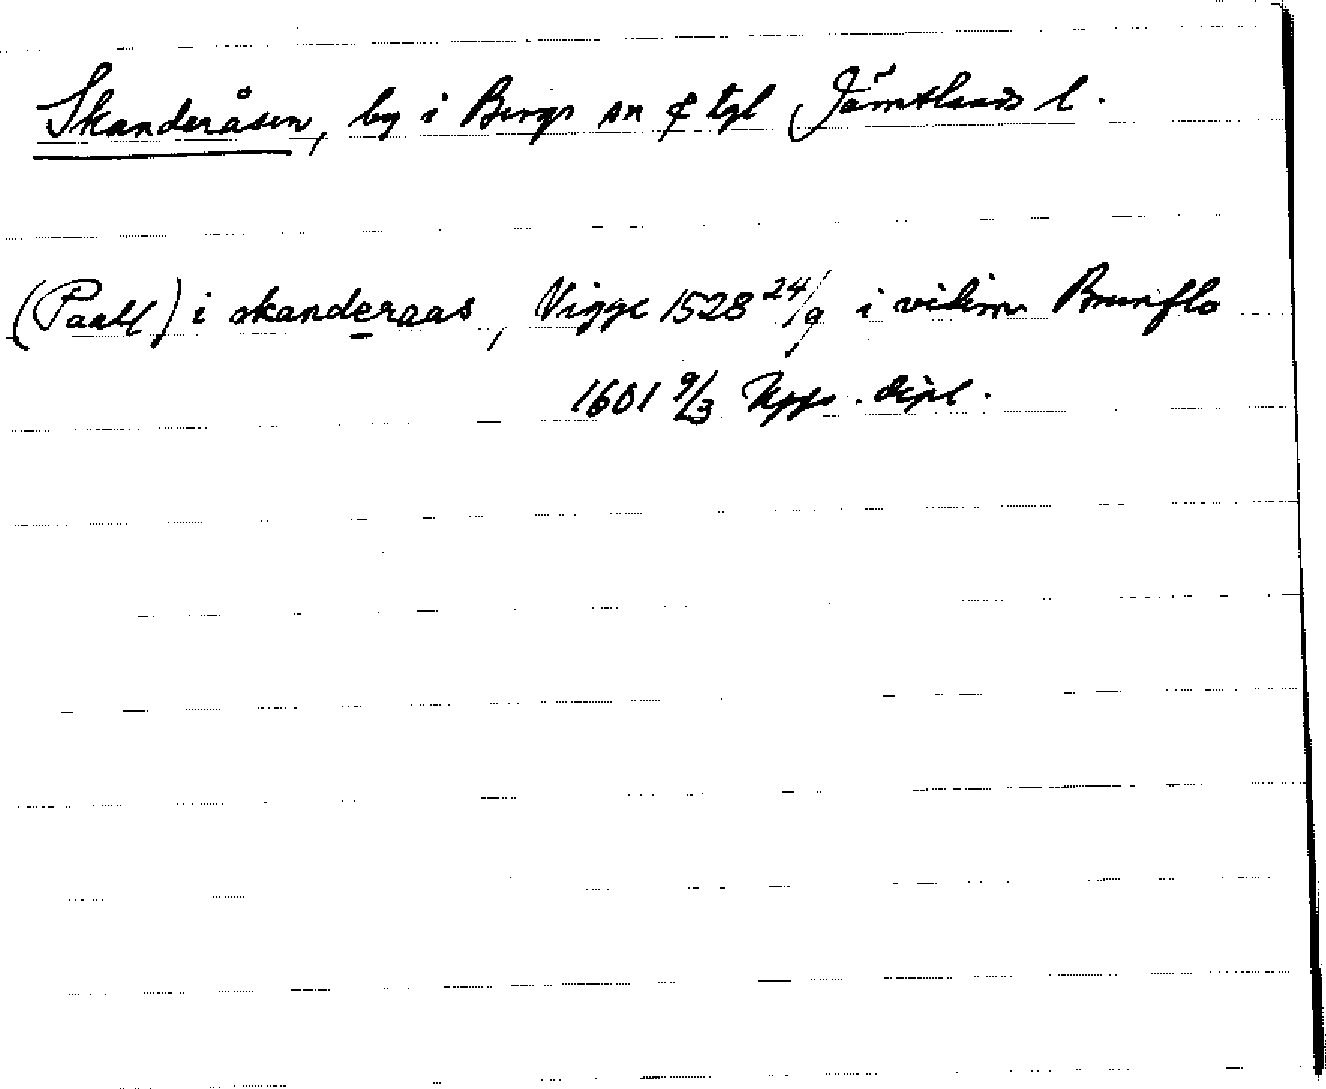 Skanderåsen, by i Bergs sn & tgl Jämtlands l.
(Paall) i skanderaas, Vigge 1528 24/9 i vidim Brunflo
1601 9/3 Upps. dipl.